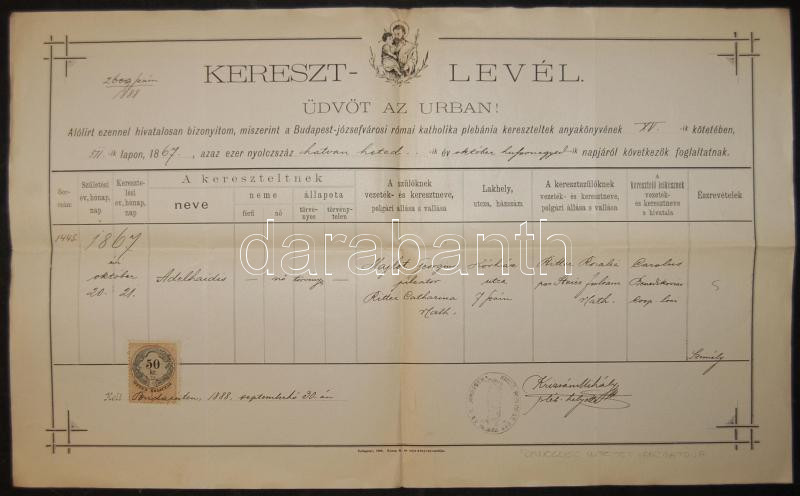 KERESZT- LEVÉL.
1888
ÜDVÖT AZ URBAN!
Alólirt ezennel hivatalosan bizonyitom, miszerint a Budapest-józsefvárosi római katholika plebánia kereszteltek anyakönyvének XV. -ik kötetében,
-ik lapon, 1867., azaz ezer nyolczszáz hatvan heted -ik év október huszonegyedik napjáról következők foglaltatnak.
Sor-szám
Születési év, hónap, nap
Keresztelési év, hónap, nap
A kereszteltnek
neve
neme
férfi
nő
állapota
törvényes
törvénytelen
A szülőknek vezeték- és keresztneve, polgári állása s vallása
Lakhely, utcza, házszám
A keresztszülőknek vezeték- és keresztneve, polgári állása s vallása
A keresztelő lelkésznek vezeték- és keresztneve s hivatala
Észrevételek
1445.
1867
év
október
20. 21.
Adelhaidis
— nő törvényes —
Ritter Catharina
Kath.
utcza
7 szám
Ritter Rosalia
Kath.
Carolus
Coop. loci
darabanth
50
Kelt Budapesten, 1888. szeptemberhó 30.-án
Krizsán Mihály
pléb. helyettes